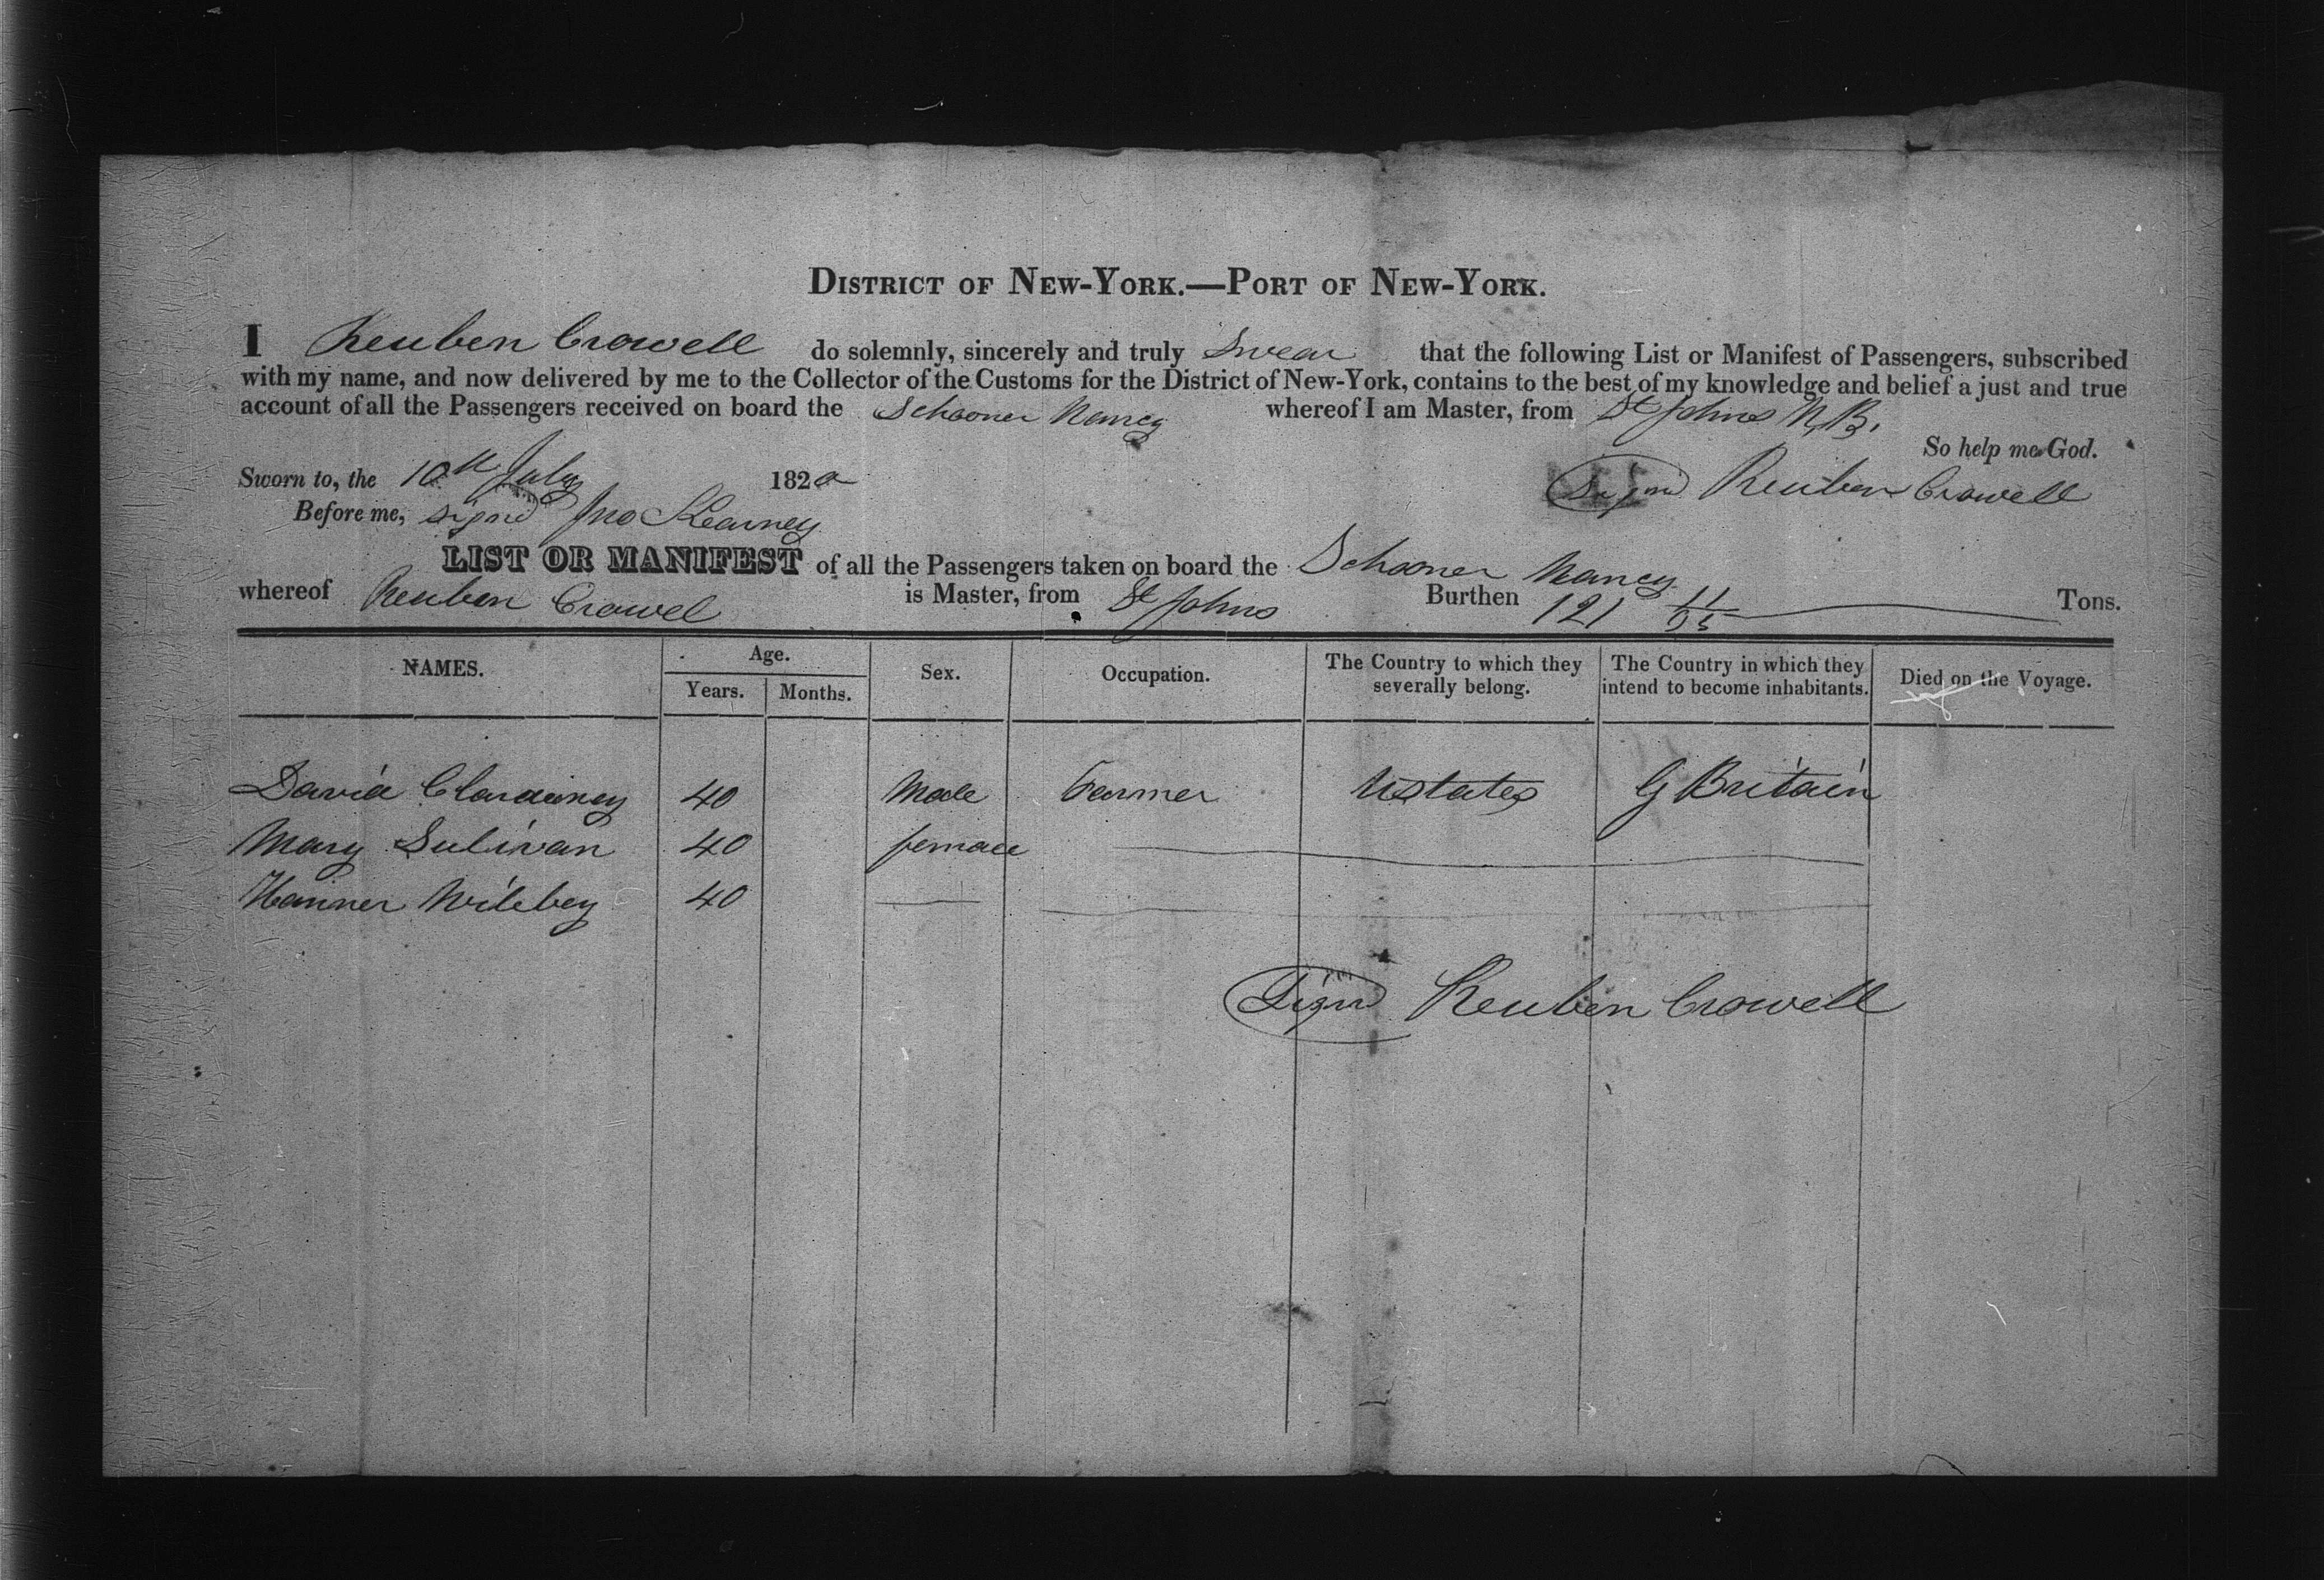 DISTRICT OF NEW-YORK.—PORT OF NEW-YORK.
I Reuben Crowell do solemnly, sincerely and truly Swear that the following List or Manifest of Passengers, subscribed
with my name, and now delivered by me to the Collector of the Customs for the District of New-York, contains to the best of my knowledge and belief a just and true
account of all the Passengers received on board the Schooner Nancy whereof I am Master, from St Johns N,B,
So help me God.
Sworn to, the 10th July 1820 Signd Reuben Crowell
Before me, signd Jno Kearney
LIST OR MANIFEST of all the Passengers taken on board the Schooner Nancy
whereof Reuben Crowel is Master, from St Johns Burthen 121 11/95 Tons.
NAMES. Age. Years. Months. Sex. Occupation. The Country to which they severally belong. The Country in which they intend to become inhabitants. Died on the Voyage.
David 40 Male Farmer Ustates G Britain
Mary Sulivan 40 female
Hanner 40
Signd Reuben Crowell